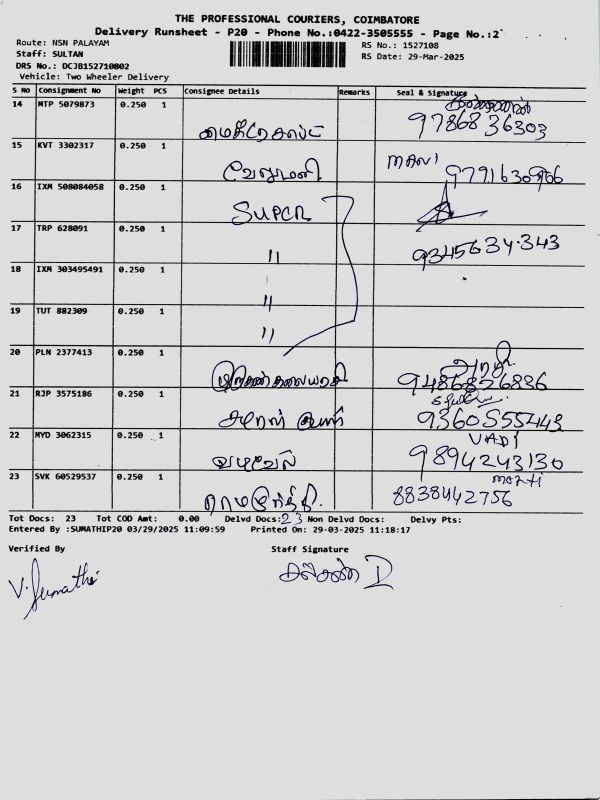 THE PROFESSIONAL COURIERS, COIMBATORE
Delivery Runsheet - P20 - Phone No.:0422-3505555 - Page No.:2
Route: NSN PALAYAM
RS No.: 1527108
Staff: SULTAN
RS Date: 29-Mar-2025
DRS No.: DCJB152710802
Vehicle: Two Wheeler Delivery
S No Consignment No Weight PCS Consignee Details Remarks Seal & Signature
14 MTP 5079873 0.250 1 97868 36303
15 KVT 3302317 0.250 1 வேலுமணி 9791630966
16 IXM 508084058 0.250 1 SUPER
17 TRP 628091 0.250 1 " 9345634343
18 IXM 303495491 0.250 1 "
19 TUT 882309 0.250 1 "
20 PLN 2377413 0.250 1 9486826836
21 RJP 3575186 0.250 1 9360555443
22 MYD 3062315 0.250 1 வடிவேல் VADI 9894243130
23 SVK 60529537 0.250 1 ராமமூர்த்தி. 8838442756
Tot Docs: 23 Tot COD Amt: 0.00 Delvd Docs: 23 Non Delvd Docs: Delvy Pts:
Entered By :SUMATHIP20 03/29/2025 11:09:59 Printed On: 29-03-2025 11:18:17
Verified By Staff Signature
V. Sumathi